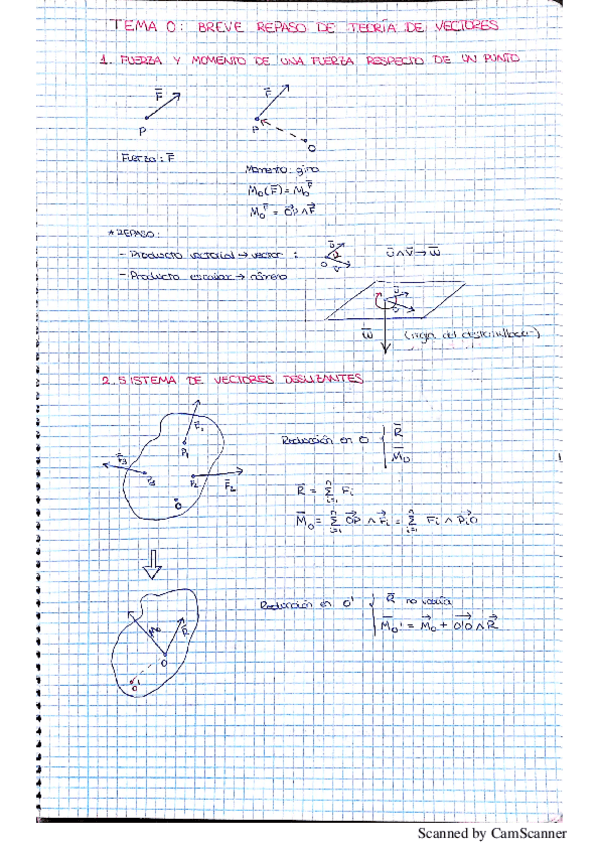 TEMA 0: BREVE REPASO DE TEORÍA DE VECTORES
1. FUERZA Y MOMENTO DE UNA FUERZA RESPECTO DE UN PUNTO
F̄
P
F̄
P
O
Fuerza: F̄
Momento: giro
M̄₀(F̄) = M̄₀ᴾ
M̄₀ᴾ = OP⃗ ∧ F̄
* REPASO:
- Producto vectorial → vector :
ū
O
v̄
ū ∧ v̄ → w̄
- Producto escalar → número
ū
v̄
w̄
(regla del destornillador)
2. SISTEMA DE VECTORES DESLIZANTES
F̄₁
P₁
F̄₃
P₃
F̄₂
P₂
O
Reducción en O { R̄
M̄₀
R̄ = Σ Fᵢ
M̄₀ = Σ OP⃗ ∧ F⃗ᵢ = Σ Fᵢ ∧ PᵢO⃗
Reducción en O' { R̄ no varía
M̄₀' = M̄₀ + O'O⃗ ∧ R⃗
M̄₀
R̄
O
O'
Scanned by CamScanner